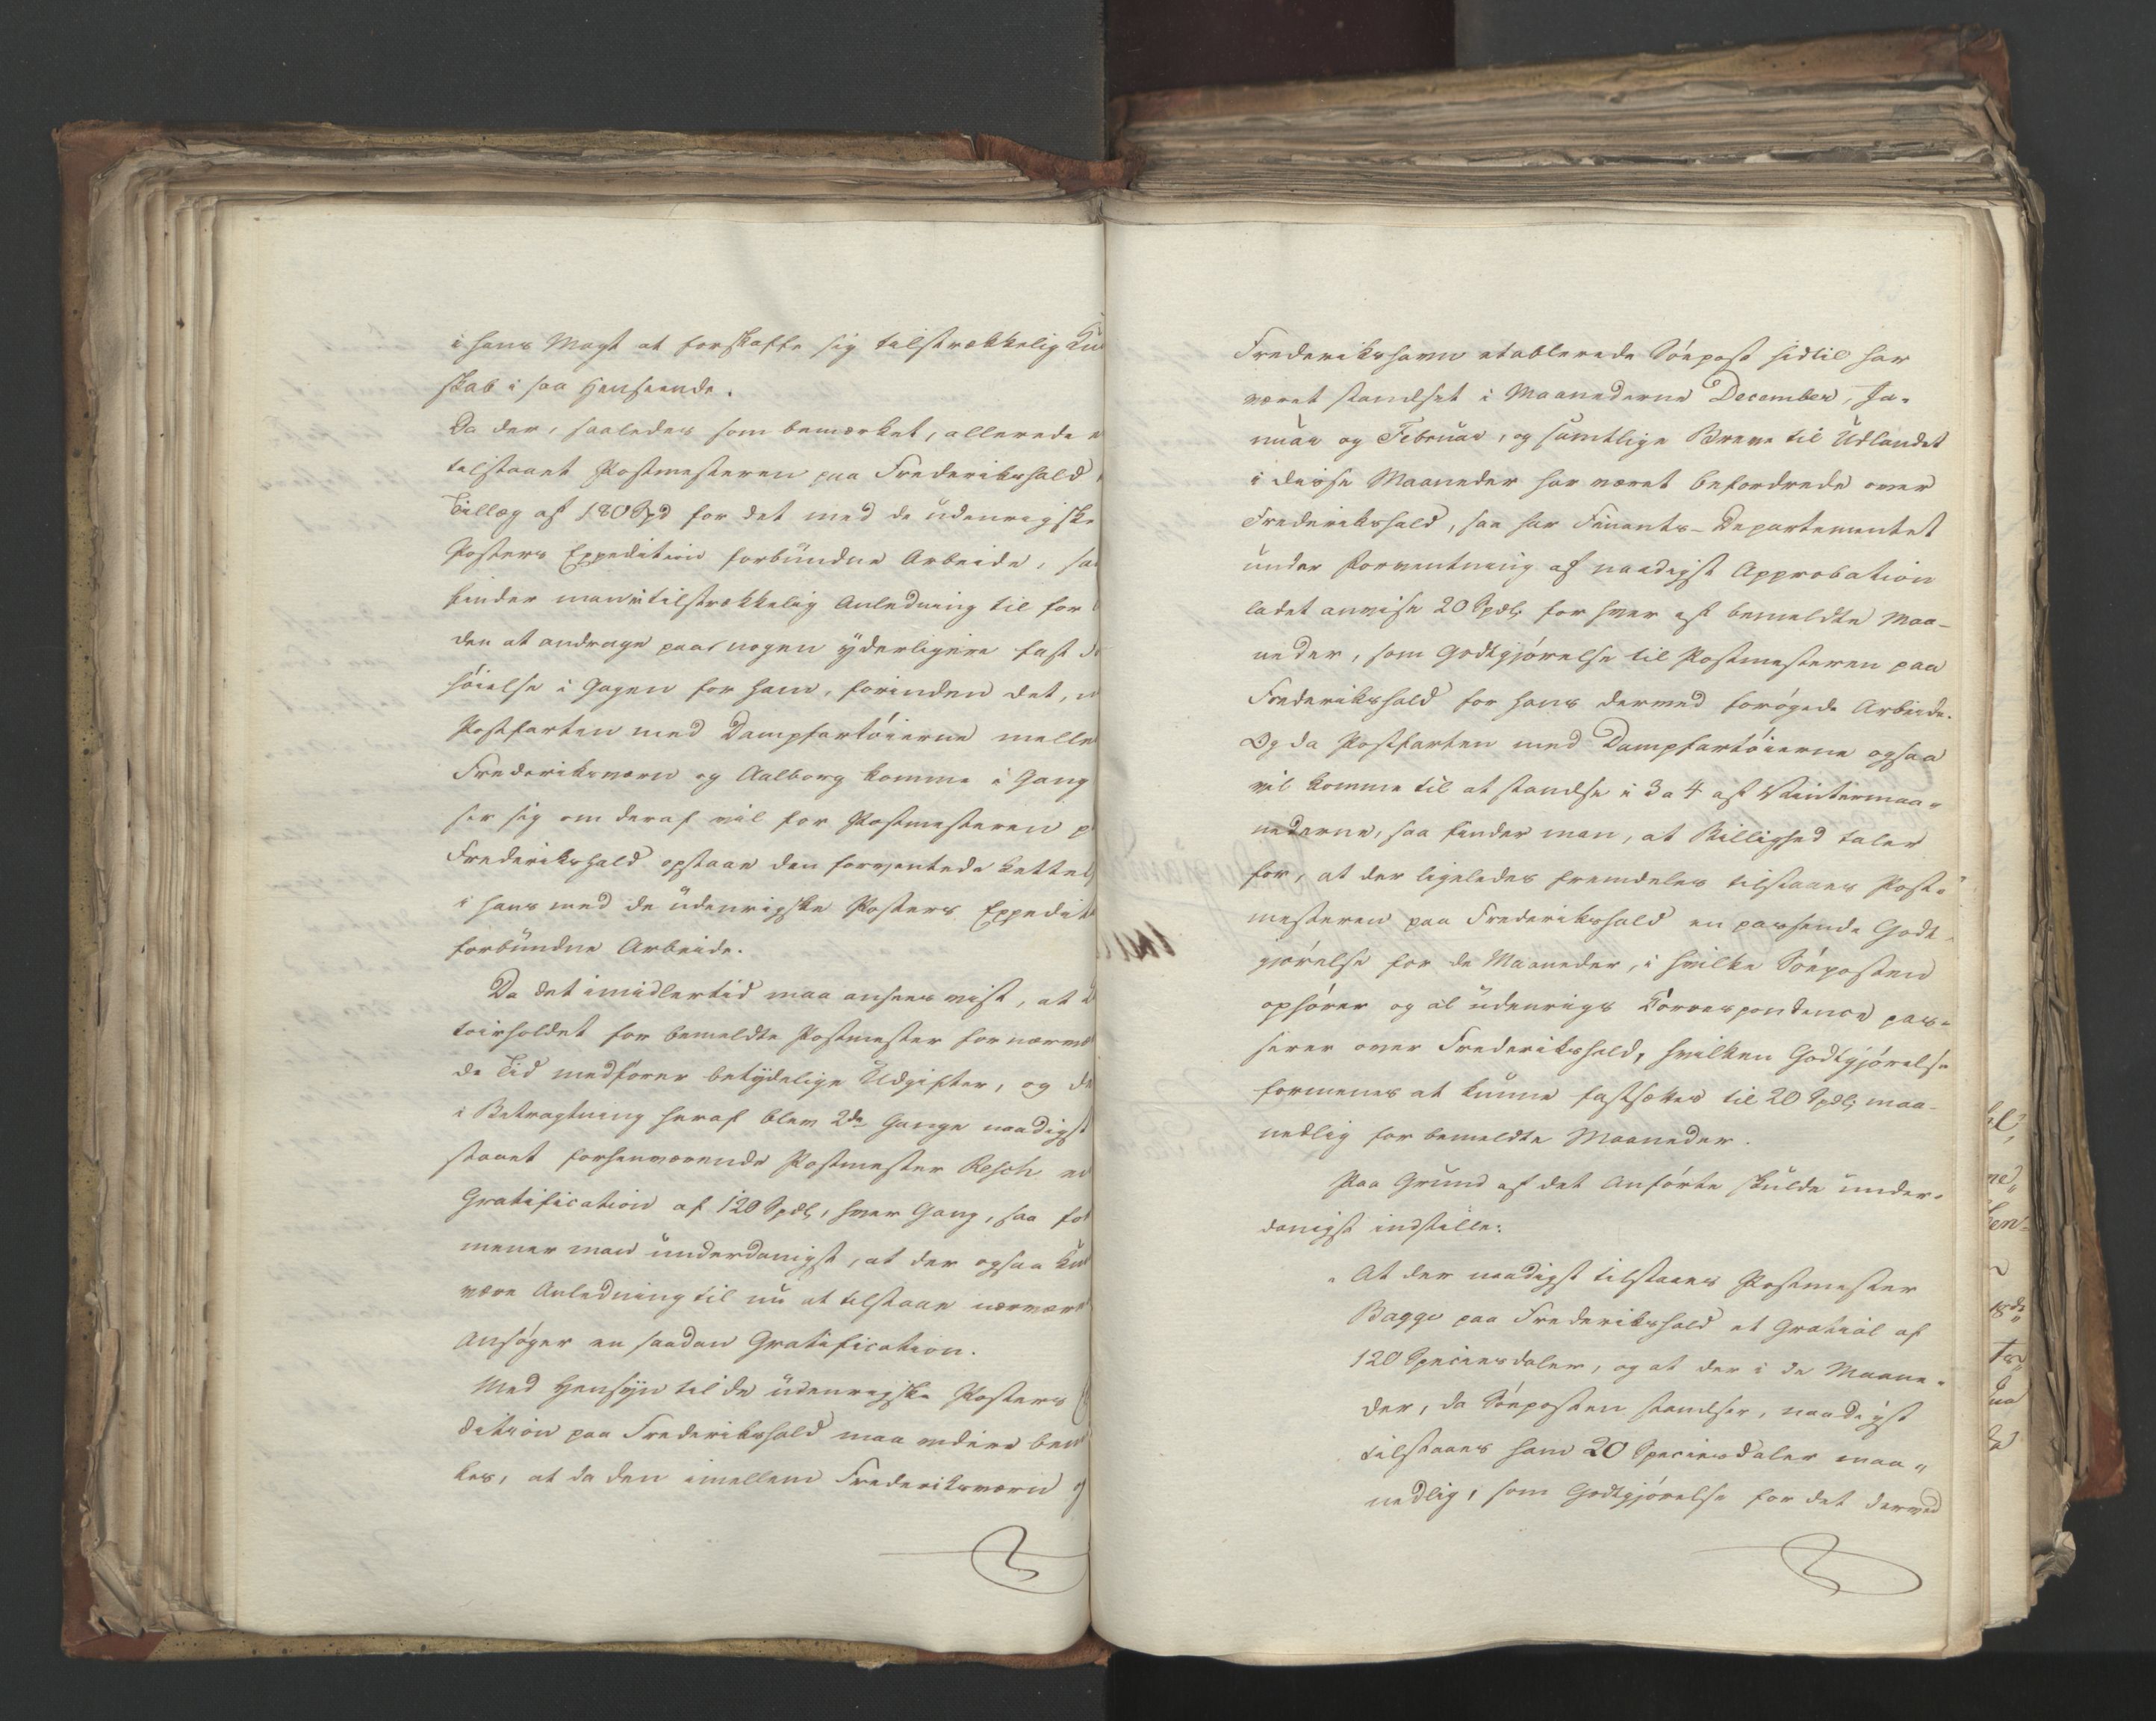 i hans Magt at forskaffe sig tilstrækkelig Kun
skab i saa Henseende.
Da der, saaledes som bemærket, allerede e
tilstaaet Postmesteren paa Frederikshald
Tillæg af 180 Spd for det med de udenrigske
Posters Expedition forbundne Arbeide, saa
finder man ei tilstrækkelig Anledning til for
den at andrage paa nogen yderligere fast
høielse i Gagen for ham, forinden det, n
Postfarten med Dampfartøierne melle
Frederiksværn og Aalborg komme i Gang
ser sig om deraf vil for Postmesteren p
Frederikshald opstaae den forventede Lettel
i hans med de udenrigske Posters Expedit
forbundne Arbeide.
Da det imidlertid maa ansees vist, at
toirholdet for bemeldte Postmester for nærvæ
de Tid medfører betydelige Udgifter, og da
i Betragtning heraf blev 2de Gange naadigst
staaet forhenværende Postmester Resch en
Gratification af 120 Spdl, hver Gang, saa for
mener man underdanigst, at der ogsaa kun
være Anledning til nu at tilstaae nærvære
Ansøger en saadan Gratification.
Med Hensyn til de udenrigske Posters
dition paa Frederikshald maa videre bem
kes, at da den imellem Frederiksværn og
Frederikshavn etablerede Søepost hidtil har
været standset i Maanederne December, Ja-
nuar og Februar, og samtlige Breve til Udlandet
i disse Maaneder har været befordrede over
Frederikshald, saa har Finants-Departementet
under Forventning af naadigst Approbation
ladet anvise 20 Spdl; for hver af bemeldte Maa-
neder, som Godtgjørelse til Postmesteren paa
Frederikshald for hans dermed forøgede Arbeide.
Og da Postfarten med Dampfartøierne ogsaa
vil komme til at standse i 3 a 4 af Vintermaa-
nederne, saa finder man, at Billighed taler
for, at der ligeledes fremdeles tilstaaes Post-
mesteren paa Frederikshald en passende Godt
gjørelse for de Maaneder, i hvilke Søeposten
ophører og al udenrigs Correspondence pas-
serer over Frederikshald, hvilken Godtgjørelse
formenes at kunne fastsættes til 20 Spdl; maa-
nedlig for bemeldte Maaneder.
Paa Grund af det Anførte skulde under-
danigst indstille:
"At der naadigst tilstaaes Postmester
Bagge paa Frederikshald et Gratial af
120 Speciesdaler, og at der i de Maane-
der, da Søeposten standser, naadigst
tilstaaes ham 20 Speciesdaler maa-
nedlig, som Godtgjørelse for det derved